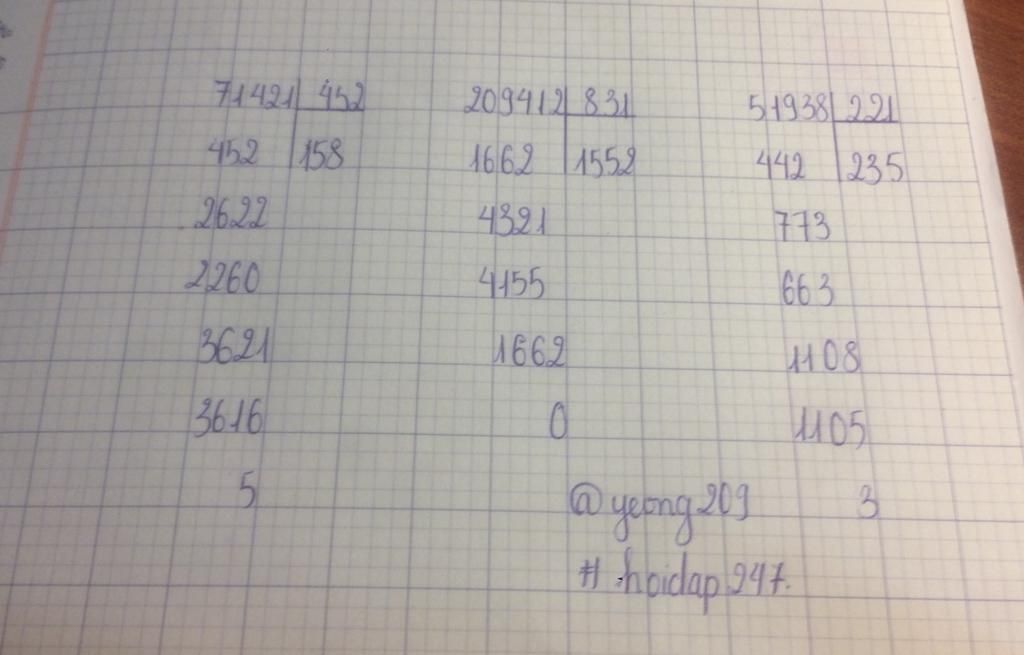 71421 452 209412 831 51938 221
452 158 1662 1552 442 235
2622 4321 773
2260 4155 663
3621 1662 1108
3616 0 1105
5 @yeong209 3
# hoidap247.